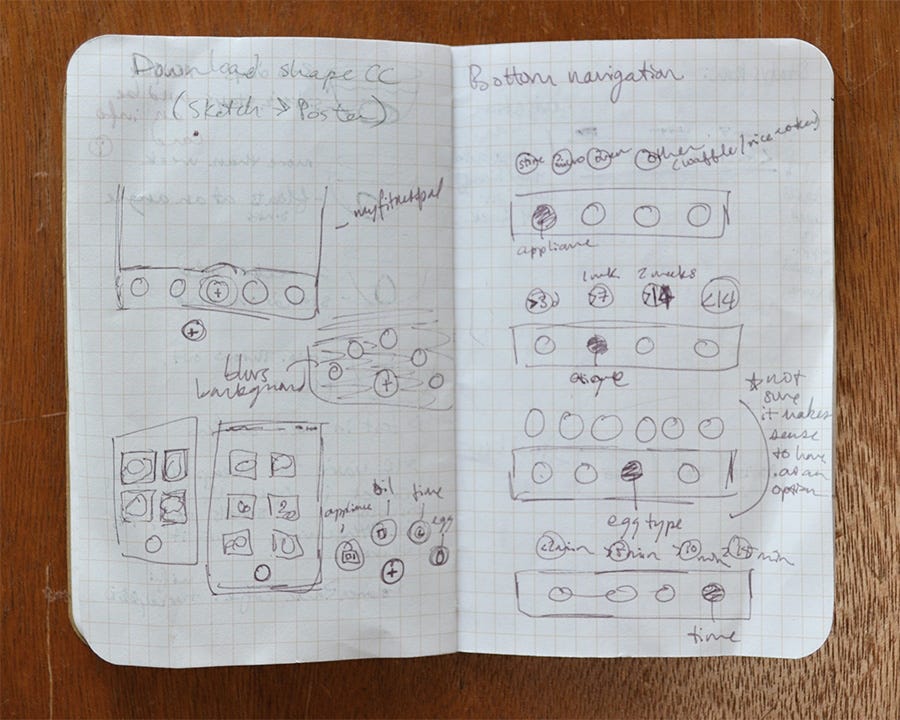 Download shape CC
(Sketch → Poster)
myfitnesspal
+
+
blurs
background
+
appliance
oil
time
egg
+
Bottom navigation
stove
micro
oven
other
(waffle/rice cooker)
appliance
1 wk
2 weeks
>3
>7
>14
<14
egg type
☆ not
sure
it makes
sense
to have
as an
option
min
>5 min
>10 min
min
time